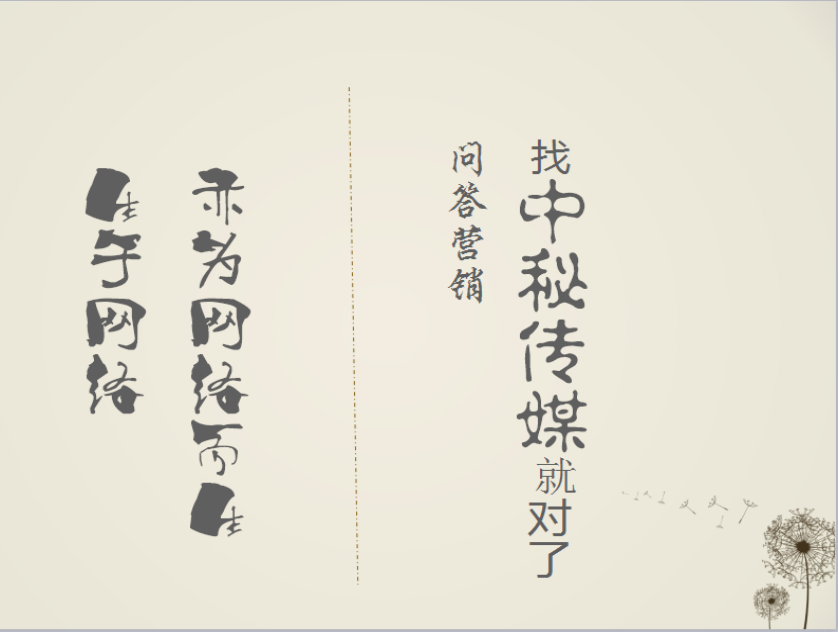 生于网络
亦为网络而生
问答营销
找中秘传媒就对了